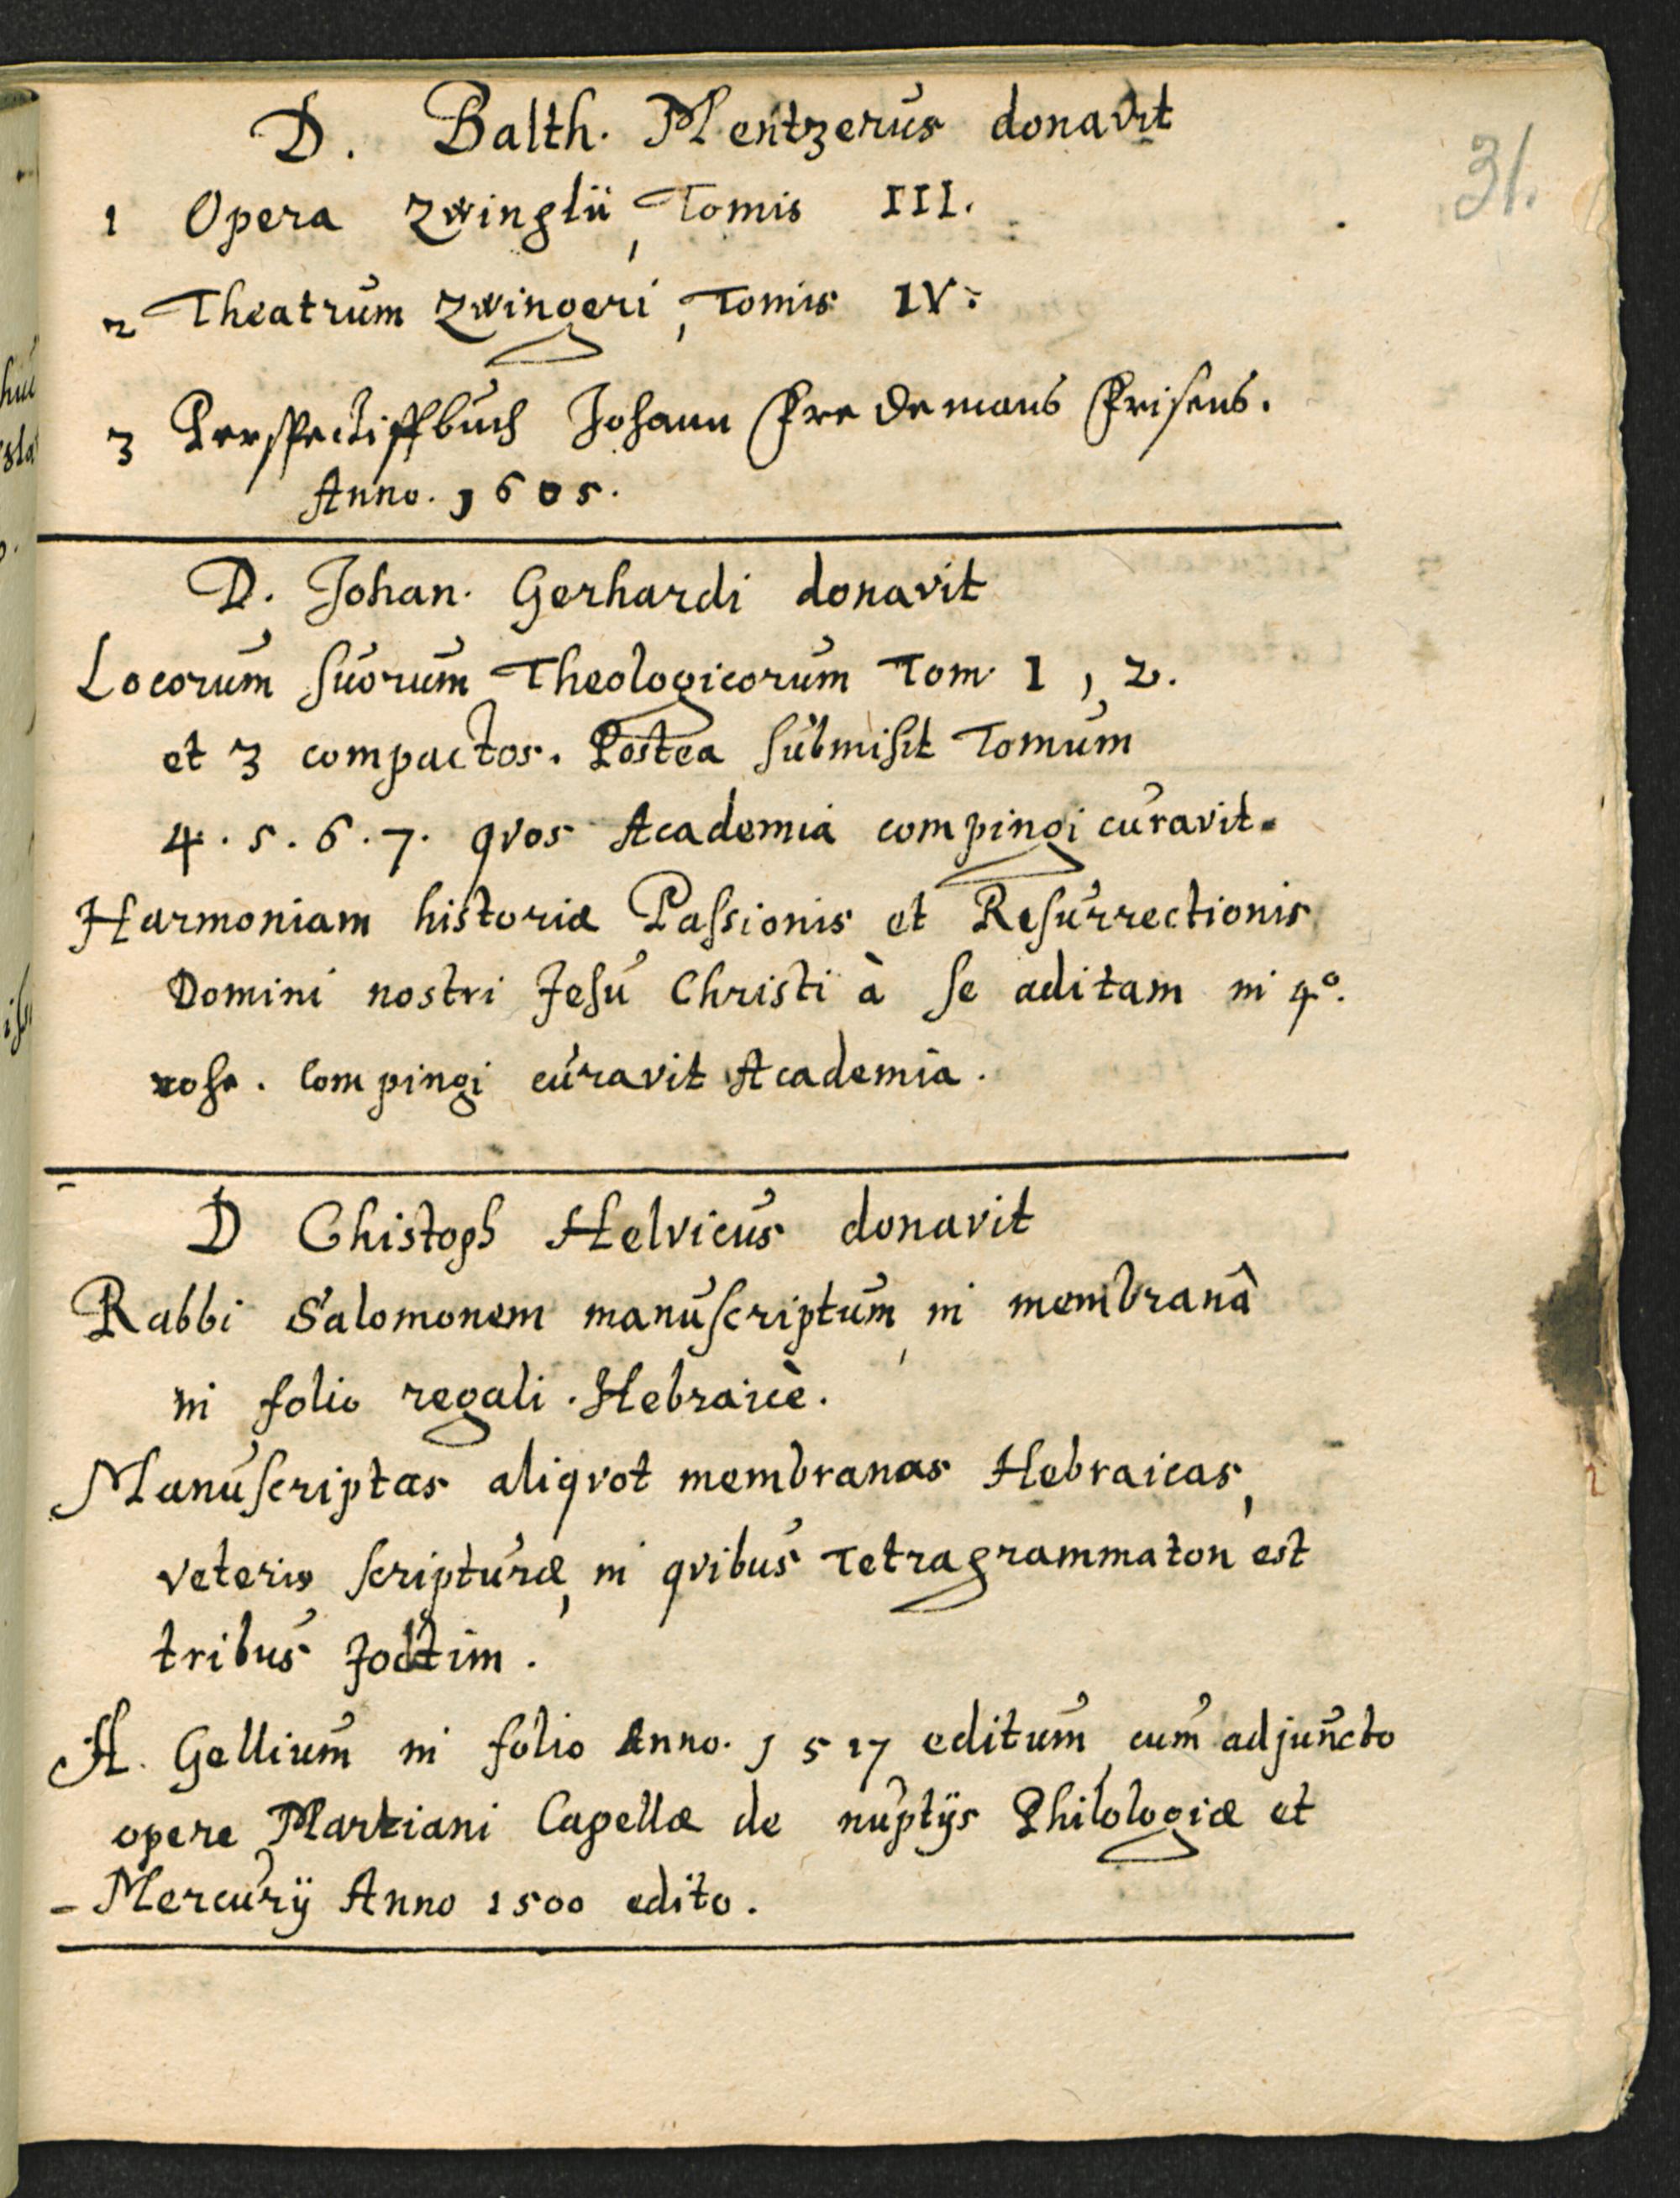 31.
D. Balth. Mentzerus donavit
1 Opera Zwinglii, Tomis III.
2 Theatrum Zwingeri, Tomis IV.
3 Perspectiffbuch Johann Fredemans Frisens.
Anno. 1605.
D. Johan. Gerhardi donavit
Locorum suorum Theologicorum Tom. 1, 2.
et 3 compactos. Postea submisit Tomum
4. 5. 6. 7. qvos Academia compingi curavit.
Harmoniam historiæ Passionis et Resurrectionis
Domini nostri Jesu Christi à se aditam in 4º.
rohe. Compingi curavit Academia.
D Chistoph Helvicus donavit
Rabbi Salomonem manuscriptum, in membranâ
in folio regali. Hebraicè.
Manuscriptas aliqvot membranas Hebraicas,
veteris scripturæ, in qvibus Tetragrammaton est
tribus
A. Gellium in folio Anno. 1517 editum cum adjuncto
opere Martiani Capellæ de nuptijs Philologiæ et
Mercurij Anno 1500 edito.